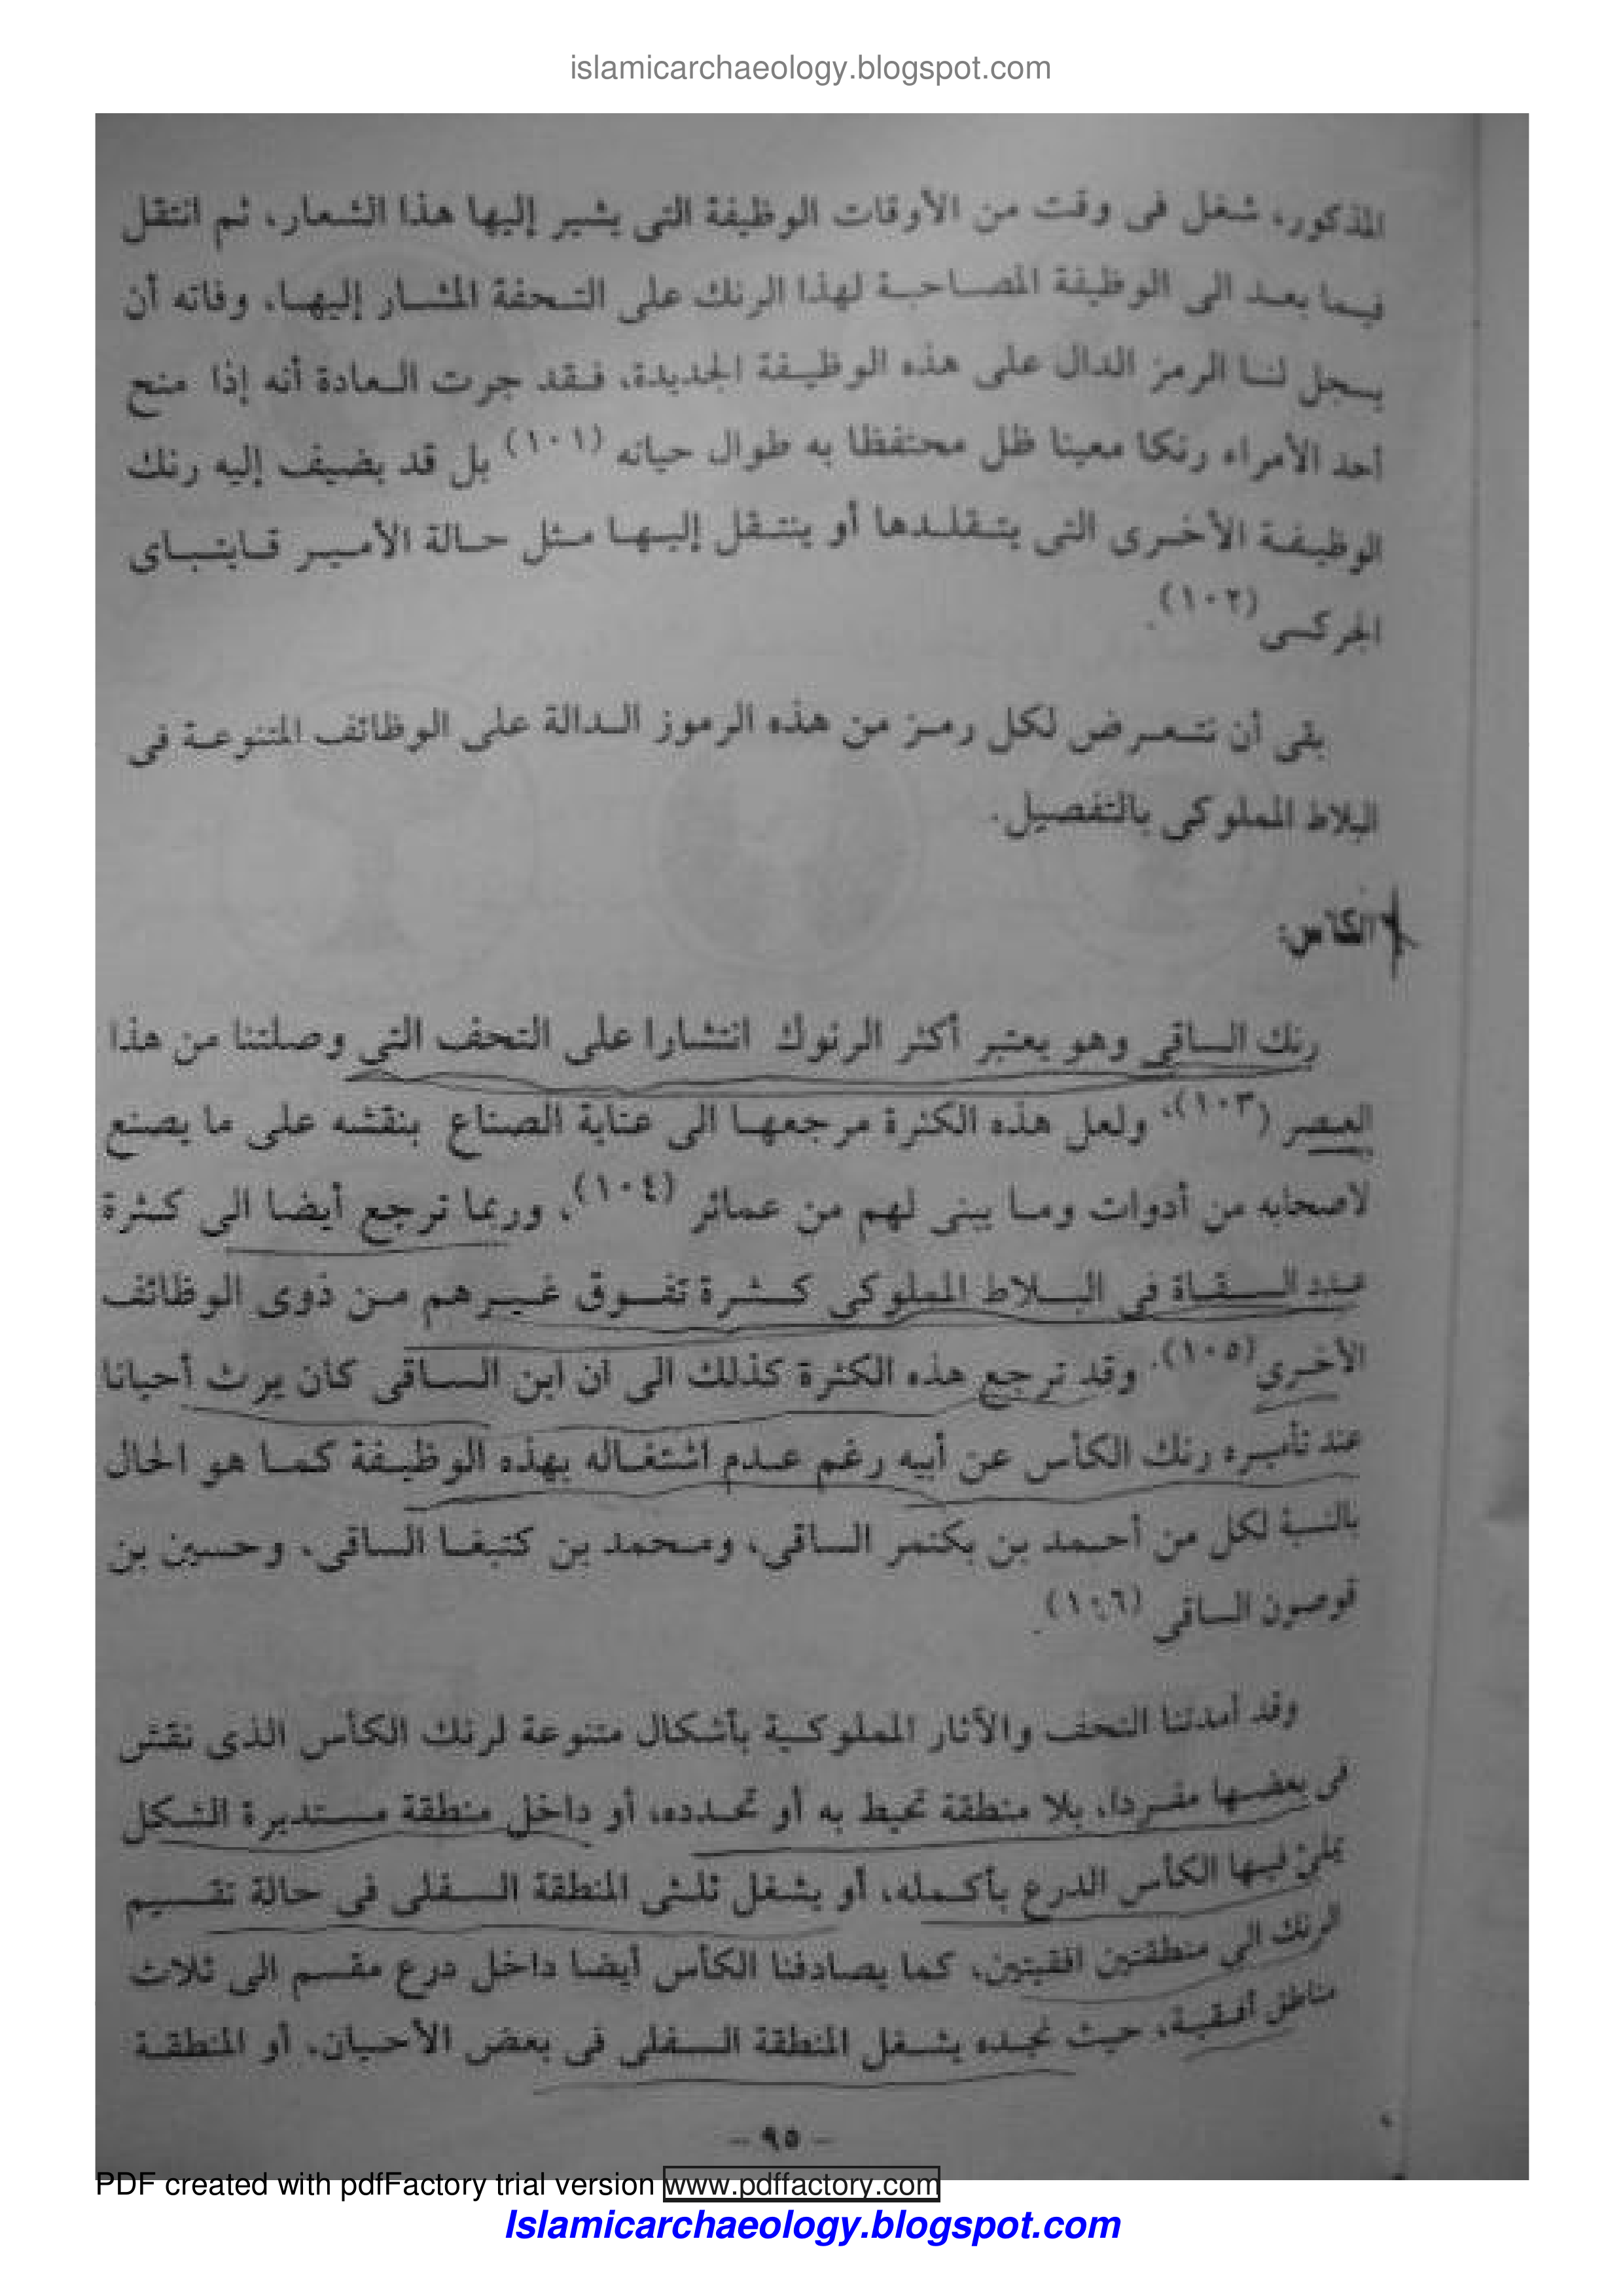 islamicarchaeology.blogspot.com
المذكور، شغل فى وقت من الأوقات الوظيفة التى يشير إليها هذا الشعار، ثم انتقل
فيما بعد الى الوظيفة المصاحبة لهذا الرنك على التحفة المشار إليها، وفاته أن
يسجل لنا الرمز الدال على هذه الوظيفة الجديدة، فقد جرت العادة أنه إذا منح
أحد الأمراء رنكا معينا ظل محتفظا به طوال حياته (١٠١) بل قد يضيف إليه رنك
الوظيفة الأخرى التى يتقلدها أو ينتقل إليها مثل حالة الأمير قايتباى
الجركسى (١٠٢).
بقى أن نتعرض لكل رمز من هذه الرموز الدالة على الوظائف المتنوعة فى
البلاط المملوكى بالتفصيل.
الكاس:
رنك الساقى وهو يعتبر أكثر الرنوك انتشارا على التحف التى وصلتنا من هذا
العصر (١٠٣)، ولعل هذه الكثرة مرجعها الى عناية الصناع بنقشه على ما يصنع
لاصحابه من أدوات وما يبنى لهم من عمائر (١٠٤)، وربما ترجع أيضا الى كثرة
عدد السقاة فى البلاط المملوكى كثرة تفوق غيرهم من ذوى الوظائف
الأخرى (١٠٥). وقد ترجع هذه الكثرة كذلك الى ان ابن الساقى كان يرث أحيانا
عند تأميره رنك الكأس عن أبيه رغم عدم اشتغاله بهذه الوظيفة كما هو الحال
بالنسبة لكل من أحمد بن بكتمر الساقى، ومحمد بن كتبغا الساقى، وحسين بن
قوصون الساقى (١٠٦).
وقد أمدتنا التحف والآثار المملوكية بأشكال متنوعة لرنك الكأس الذى نقش
فى بعضها مفردا، بلا منطقة تحيط به أو تحدده، أو داخل منطقة مستديرة الشكل
يملئ فيها الكأس الدرع بأكمله، أو يشغل ثلثى المنطقة السفلى فى حالة تقسيم
الرنك الى منطقتين افقيتين، كما يصادفنا الكأس أيضا داخل درع مقسم الى ثلاث
مناطق أفقية، حيث نجده يشغل المنطقة السفلى فى بعض الأحيان، أو المنطقة
- ٩٥ -
PDF created with pdfFactory trial version www.pdffactory.com
Islamicarchaeology.blogspot.com